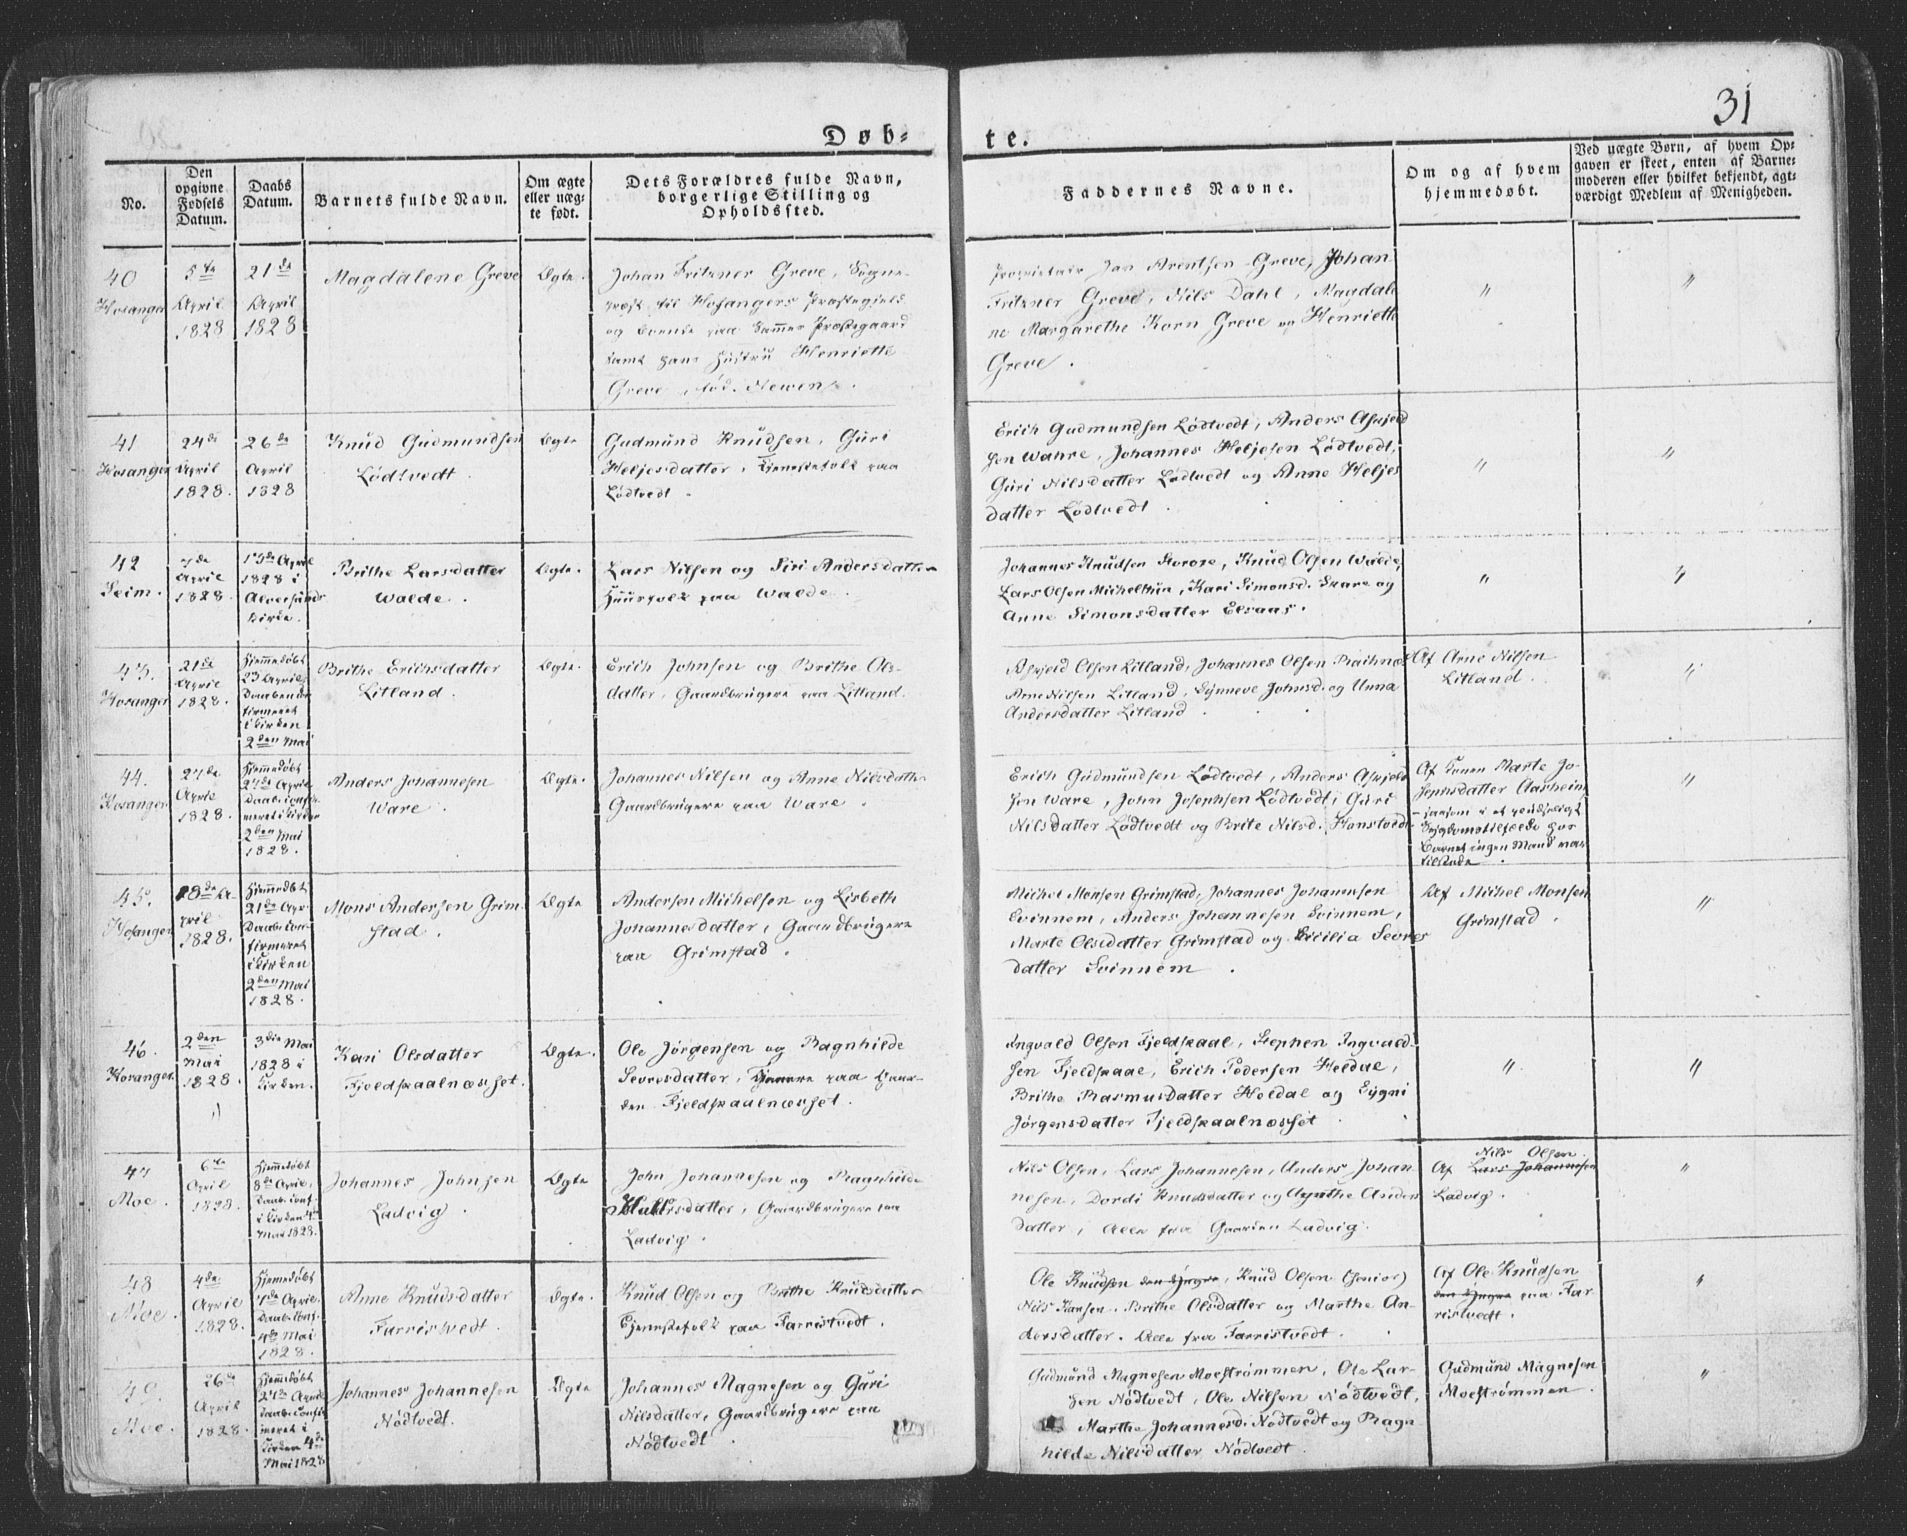 31
Døb=
te.
No.
Den
opgivne
Fødsels
Datum.
Daabs
Datum.
Barnets fulde Navn.
Om ægte
eller uæg-
te født.
Dets Forældres fulde Navn,
borgerlige Stilling og
Opholdssted.
Faddernes Navne.
Om og af hvem
hjemmedøbt.
Ved uægte Børn, af hvem Op-
gaven er skeet, enten af Barne-
moderen eller hvilket bekjendt, agt-
værdigt Medlem af Menigheden.
40
Hosanger
5te
April
1828
21de
April
1828
Magdalene Greve
Ægte.
Johan Fritzner Greve, Sogne-
præst til Hosangers Præstegield
og boende paa Samme Præstegaard
samt hans Hustru Henriette
Greve, fød
Proprietair Jan Arentsen Greve, Johan
Fritzner Greve, Nils Dahl, Magdale
ne Margarethe Korn Greve og Henriette
Greve.
"
"
41
Hosanger
24de
April
1828.
26de
April
1828
Knud Gudmundsen
Lødtvedt.
Ægte
Gudmund Knudsen, Guri
Heljesdatter, Tjenestefolk paa
Lødtvedt.
Erich Gudmundsen Lødtvedt, Anders Askjeld
sen Wahre, Johannes Heljesen Lødtvedt,
Guri Nilsdatter Lødtvedt og Anne Heljes
datter Lødtvedt.
"
"
42
Seim.
7de
April
1828
13de April
1828 i
Alversunds
Kirke.
Brithe Larsdatter
Walde.
Ægte.
Lars Nilsen og Siri Andersdatter
Huusfolk paa Walde.
Johannes Knudsen, Knud Olsen Walde,
Lars Olsen Michelthun, Kari Simonsd. Skare og
Anne Simonsdatter Elsaas.
"
"
43.
Hosanger
21de
April
1828.
Hjemmedøbt
23 April
Daaben con
firmeret
i Kirken
2den Mai
Brithe Erichsdatter
Litland.
Ægte.
Erich Johnsen og Brithe Ols-
datter, Gaardbrugere paa Litland.
Olsen Litland, Johannes Olsen
Arne Nilsen Litland, Synneve Johnsd. og Unna
Andersdatter Litland.
Af Arne Nilsen
Litland.
"
44.
Hosanger
27de
April
1828.
Hjemmedøbt
27de April
Daab. confir
meret i Kirken
2den Mai
1828.
Anders Johannesen
Ware.
Ægte.
Johannes Nilsen og Anne Nilsdatter
Gaardbrugere paa Ware.
Erich Gudmundsen Lødtvedt, Anders Askjeld
sen Ware, John Josephsen Lødtvedt, Guri
Nilsdatter Lødtvedt og Brite Nilsd. Hanstvedt
Af Konen Marte Jo-
sephsdatter Aarheim
Sygdomstilfælde hos
Barnet ingen Mand var
tilstede.
"
45.
Hosanger
18de A-
pril
1828.
Hjemmedøbt
21de Apr.
Daab. con-
firmeret
i Kirken
2den Mai
1828.
Mons Andersen Grim
stad.
Ægte
Andersen Michelsen og Lisbeth
Johannesdatter, Gaardbrugere
paa Grimstad.
Michel Monsen Grimstad, Johannes Johannesen
Svinnem, Anders Johannesen Svinnem,
Marte Olsdatter Grimstad og Cicilia Sevres
datter Svinnem.
Af Michel Monsen
Grimstad.
"
46.
Hosanger.
2den
Mai
1828.
"
3die Mai
1828 i
Kirken.
Kari Olsdatter
Fjeldskaalnæsset.
Ægte.
Ole Jørgensen og Ragnhilde
Sevresdatter, paa Gaar-
den Fjeldskaalnæsset.
Ingvald Olsen Fjeldskaal, Stephen Ingvald-
sen Fjeldskaal, Erich Pedersen Heldal,
Brithe Rasmusdatter Heldal og Sygni
Jørgensdatter Fjeldskaalnæsset.
"
"
47
Moe.
6te
April
1828.
Hjemmedøbt
8de April,
Daab. conf.
i Kirken 4de
Mai 1828.
Johannes Johnsen
Ladvig.
Ægte
John Johannesen og Ragnhilde
datter, Gaardbrugere paa
Ladvig.
Nils Olsen, Lars Johannesen, Anders Johan-
nesen, Dordi Knudsdatter og Agathe Anders
datter, Alle fra Gaarden Ladvig.
Nils Olsen
Af Lars Johannesen
Ladvig.
"
48
Moe.
4de
April
1828.
Hjemmedøbt
7de April
Daab. conf.
4de Mai
1828.
Anne Knudsdatter
Farristvedt.
Ægte.
Knud Olsen og Brithe Knudsdatter
Tjenestefolk paa Farristvedt.
Ole Knudsen den Yngre, Knud Olsen (Senior)
Nils Hansen, Brithe Olsdatter og Marthe An-
dersdatter. Alle fra Farristvedt.
Af Ole Knudsen
den Yngre paa Far-
ristvedt.
"
49.
Moe.
26de
April
1828.
Hjemmedøbt
27de April
Daab. confir
meret i
Kirken 4de
Mai 1828
Johannes Johannesen
Nødtvedt.
Ægte
Johannes Magnesen og Guri
Nilsdatter, Gaardbrugere paa
Nødtvedt.
Gudmund Magnesen Moestrømmen, Ole Lar-
sen Nødtvedt, Ole Nilsen Nødtvedt,
Marthe Johannesd. Nødtvedt og Ragn
hilde Nilsdatter Nødtvedt.
Gudmund Magnesen
Moestrømmen.
"